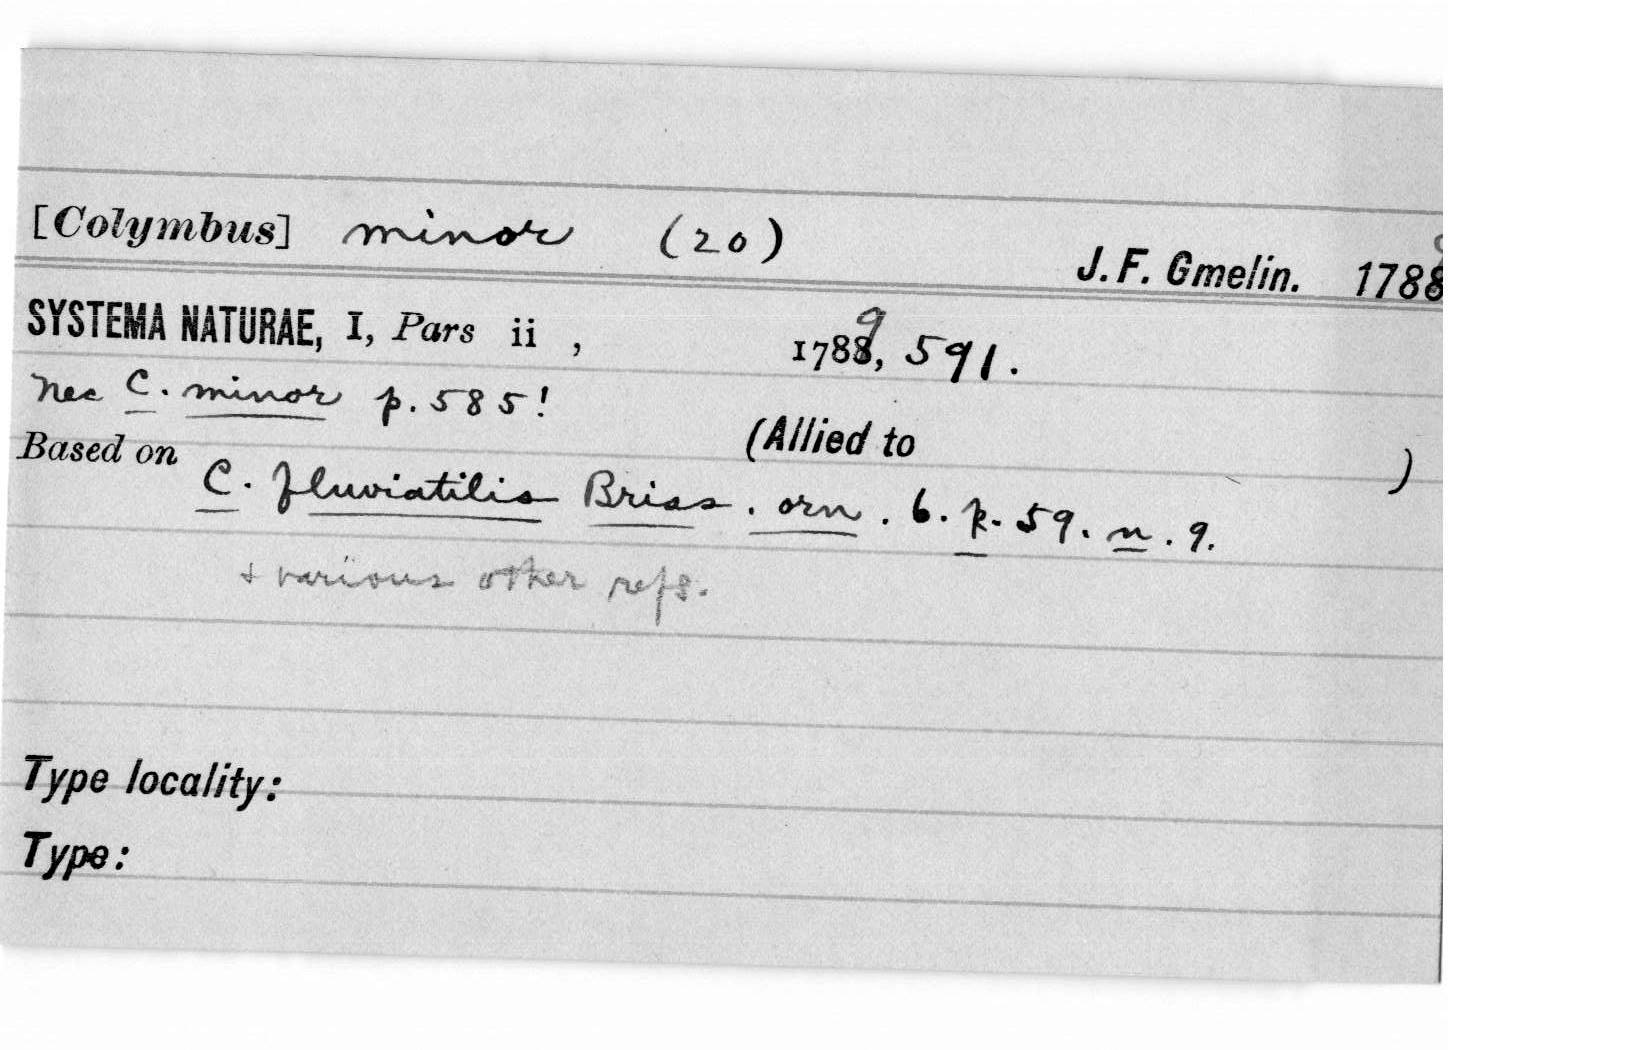 [Colymbus] minor (20)
J. F. Gmelin. 1788
SYSTEMA NATURAE, I, Pars ii , 1788, 9 591.
Nec C. minor p. 585!
Based on (Allied to )
C. fluviatilis Briss. orn. 6. p. 59. n. 9.
+ various other refs.
Type locality:
Type: